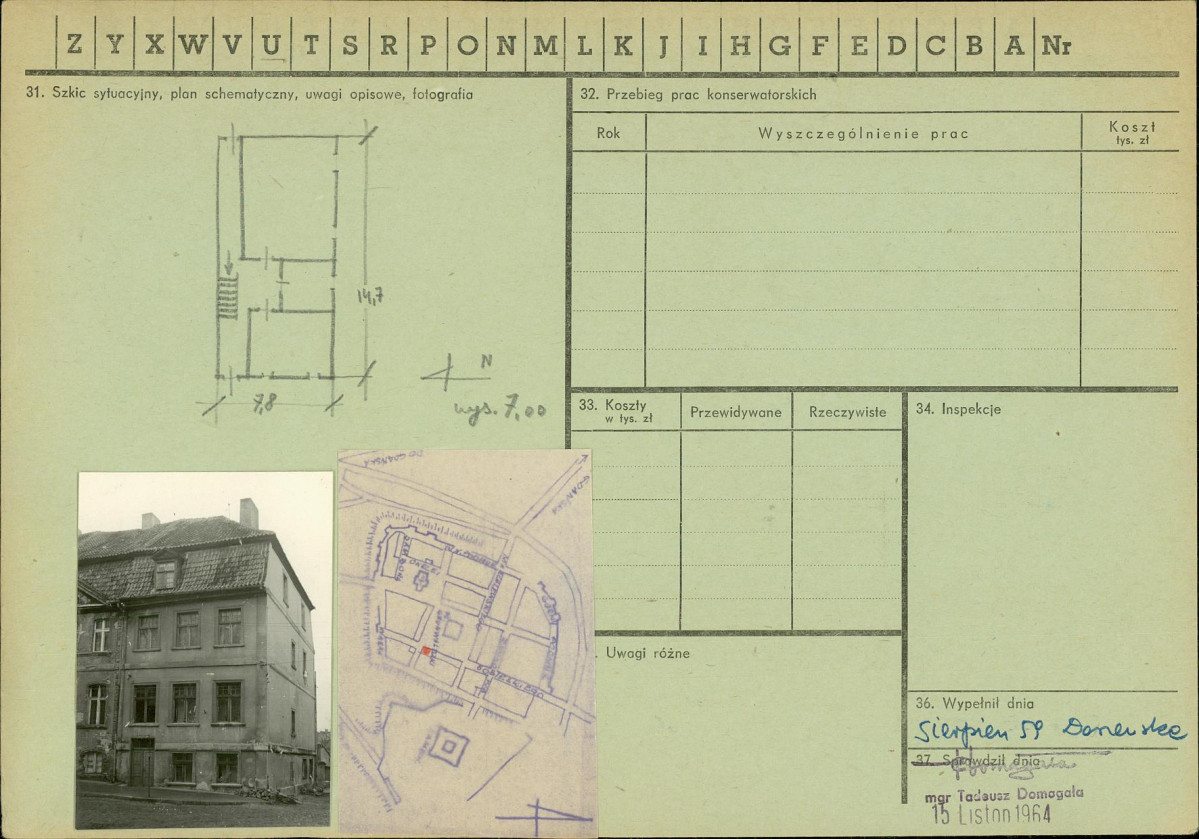 Z Y X W V U T S R P O N M L K J I H G F E D C B A Nr
31. Szkic sytuacyjny, plan schematyczny, uwagi opisowe, fotografia
14,7
7,8
N
wys. 7,00
DO GDAŃSKA
GDAŃSK
32. Przebieg prac konserwatorskich
Rok
Wyszczególnienie prac
Koszt
tys. zł
33. Koszty
w tys. zł
Przewidywane
Rzeczywiste
34. Inspekcje
. Uwagi różne
36. Wypełnił dnia
Sierpień 59
37. Sprawdził dnia
mgr Tadeusz Domagała
15 Listop 1964